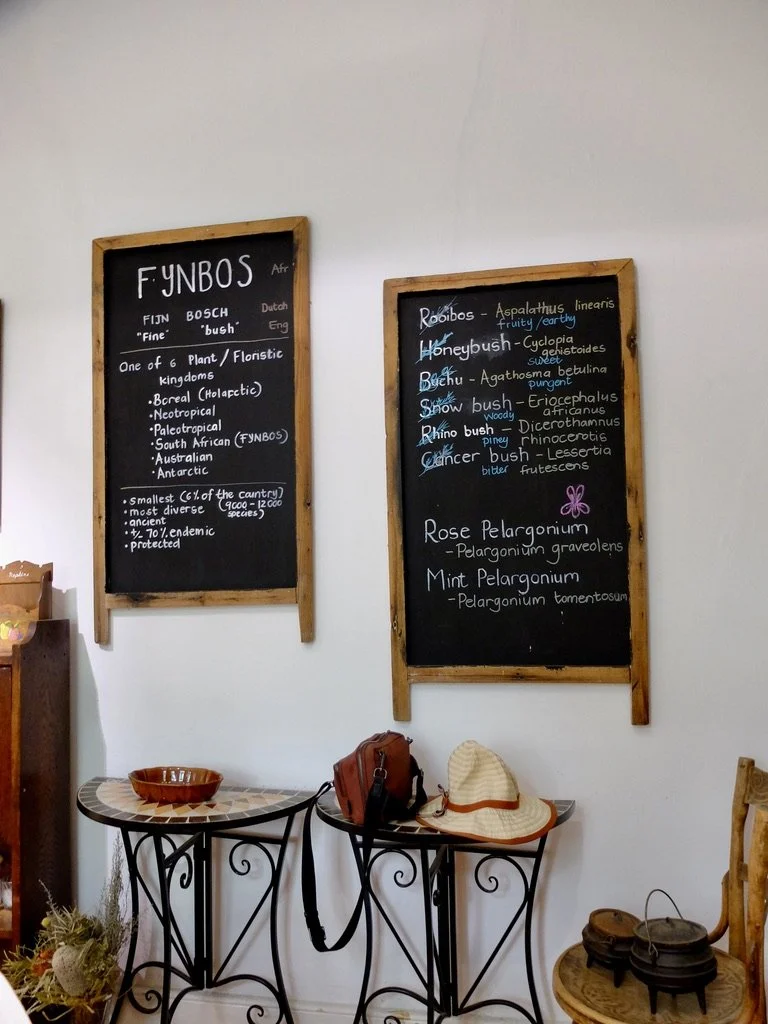 FYNBOS Afr
FIJN BOSCH Dutch
"Fine" "bush" Eng
One of 6 Plant / Floristic
Kingdoms
• Boreal (Holarctic)
• Neotropical
• Paleotropical
• South African (FYNBOS)
• Australian
• Antarctic
• smallest (6% of the country)
• most diverse (9000 - 12000
species)
• ancient
• +/- 70% endemic
• protected
Rooibos - Aspalathus linearis
fruity/earthy
Honeybush - Cyclopia
genistoides
sweet
Buchu - Agathosma betulina
pungent
Snow bush - Eriocephalus
woody africanus
Rhino bush - Dicerothamnus
piney rhinocerotis
Cancer bush - Lessertia
bitter frutescens
Rose Pelargonium
- Pelargonium graveolens
Mint Pelargonium
- Pelargonium tomentosum